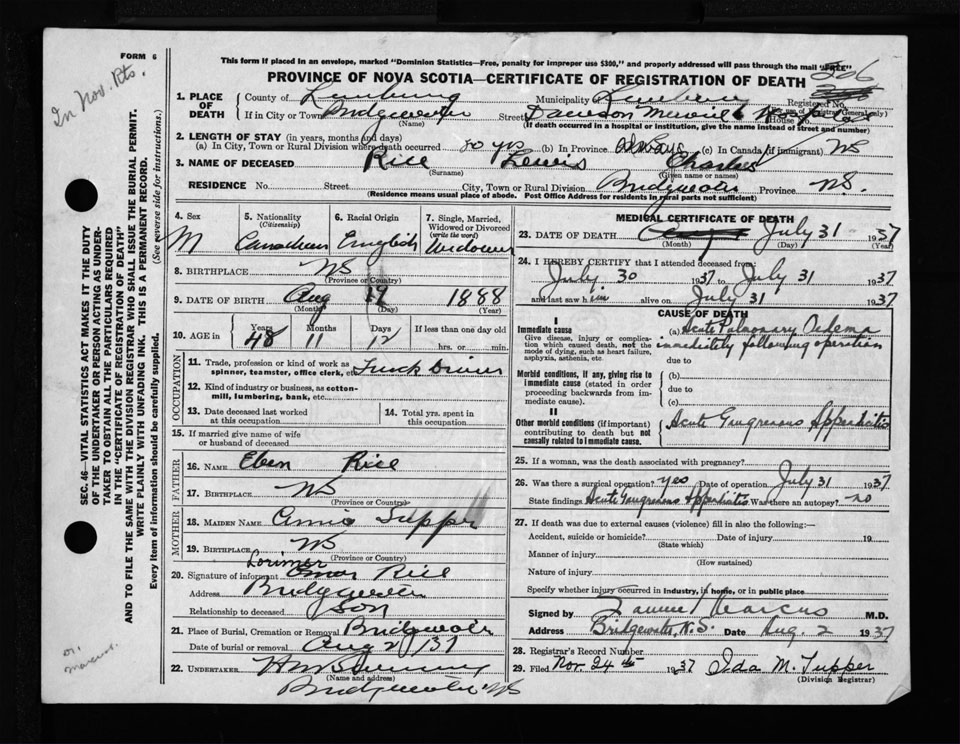 FORM 6
This form if placed in an envelope, marked "Dominion Statistics—Free, penalty for improper use $300," and properly addressed will pass through the mail "FREE"
PROVINCE OF NOVA SCOTIA—CERTIFICATE OF REGISTRATION OF DEATH
206
In Nov. Rts.
SEC. 46—VITAL STATISTICS ACT MAKES IT THE DUTY
OF THE UNDERTAKER OR PERSON ACTING AS UNDER-
TAKER TO OBTAIN ALL THE PARTICULARS REQUIRED
IN THE "CERTIFICATE OF REGISTRATION OF DEATH"
AND TO FILE THE SAME WITH THE DIVISION REGISTRAR WHO SHALL ISSUE THE BURIAL PERMIT.
WRITE PLAINLY WITH UNFADING INK. THIS IS A PERMANENT RECORD.
Every item of information should be carefully supplied. (See reverse side for instructions.)
1. PLACE OF DEATH County of Lunenburg Municipality of Registered No.
If in City or Town Bridgewater (Name) Street Dawson Memorial Hospital House No.
(If death occurred in a hospital or institution, give the name instead of street and number)
2. LENGTH OF STAY (in years, months and days)
(a) In City, Town or Rural Division where death occurred yrs (b) In Province (c) In Canada (if immigrant) NS
3. NAME OF DECEASED Rice Lewis Charles
(Surname) (Given name or names)
RESIDENCE No. Street City, Town or Rural Division Bridgewater Province N.S.
(Residence means usual place of abode. Post Office Address for residents in rural parts not sufficient)
4. Sex M
5. Nationality (Citizenship) Canadian
6. Racial Origin English
7. Single, Married, Widowed or Divorced (write the word) Widower
8. BIRTHPLACE NS
(Province or Country)
9. DATE OF BIRTH Aug 19 1888
(Month) (Day) (Year)
10. AGE in Years 48 Months 11 Days 12 If less than one day old hrs. or min.
OCCUPATION
11. Trade, profession or kind of work as spinner, teamster, office clerk, etc. Truck Driver
12. Kind of industry or business, as cotton-mill, lumbering, bank, etc.
13. Date deceased last worked at this occupation
14. Total yrs. spent in this occupation
15. If married give name of wife or husband of deceased
FATHER
16. NAME Eben Rice
17. BIRTHPLACE NS
(Province or Country)
MOTHER
18. MAIDEN NAME Annie Tupper
19. BIRTHPLACE NS
(Province or Country)
20. Signature of informant Lorimer Rice
Address Bridgewater
Relationship to deceased Son
21. Place of Burial, Cremation or Removal Bridgewater
Date of burial or removal Aug 2/37
22. UNDERTAKER
(Name and address)
Bridgewater NS
MEDICAL CERTIFICATE OF DEATH
23. DATE OF DEATH July 31 1937
(Month) (Day) (Year)
24. I HEREBY CERTIFY that I attended deceased from:
July 30 1937 to July 31 1937
and last saw him alive on July 31 1937
CAUSE OF DEATH
I
Immediate cause (a) Acute Pulmonary Oedema
Give disease, injury or complication which caused death, not the mode of dying, such as heart failure, asphyxia, asthenia, etc. immediately following operation
due to
Morbid conditions, if any, giving rise to immediate cause (stated in order proceeding backwards from immediate cause). (b)
due to
(c)
II
Other morbid conditions (if important) contributing to death but not causally related to immediate cause. Acute Gangrenous Appendicitis
25. If a woman, was the death associated with pregnancy?
26. Was there a surgical operation? yes Date of operation July 31 1937
State findings Acute Gangrenous Appendicitis Was there an autopsy? no
27. If death was due to external causes (violence) fill in also the following:—
Accident, suicide or homicide? Date of injury 19
(State which)
Manner of injury
(How sustained)
Nature of injury
Specify whether injury occurred in industry, in home, or in public place
Signed by Samuel Marcus M.D.
Address Bridgewater, N.S. Date Aug. 2 1937
28. Registrar's Record Number
29. Filed Nov. 24th 1937 Ida M. Tupper
(Division Registrar)